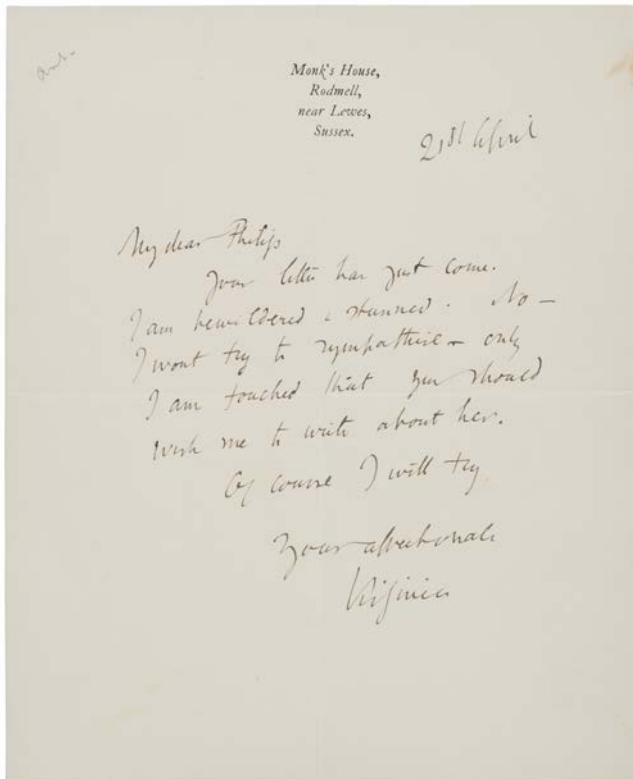 Monk's House,
Rodmell,
near Lewes,
Sussex.
21st April
My dear Philip
Your letter has just come.
I am bewildered & stunned. No –
I wont try to sympathise – only
I am touched that you should
wish me to write about her.
Of course I will try
Your affectionate
Virginia